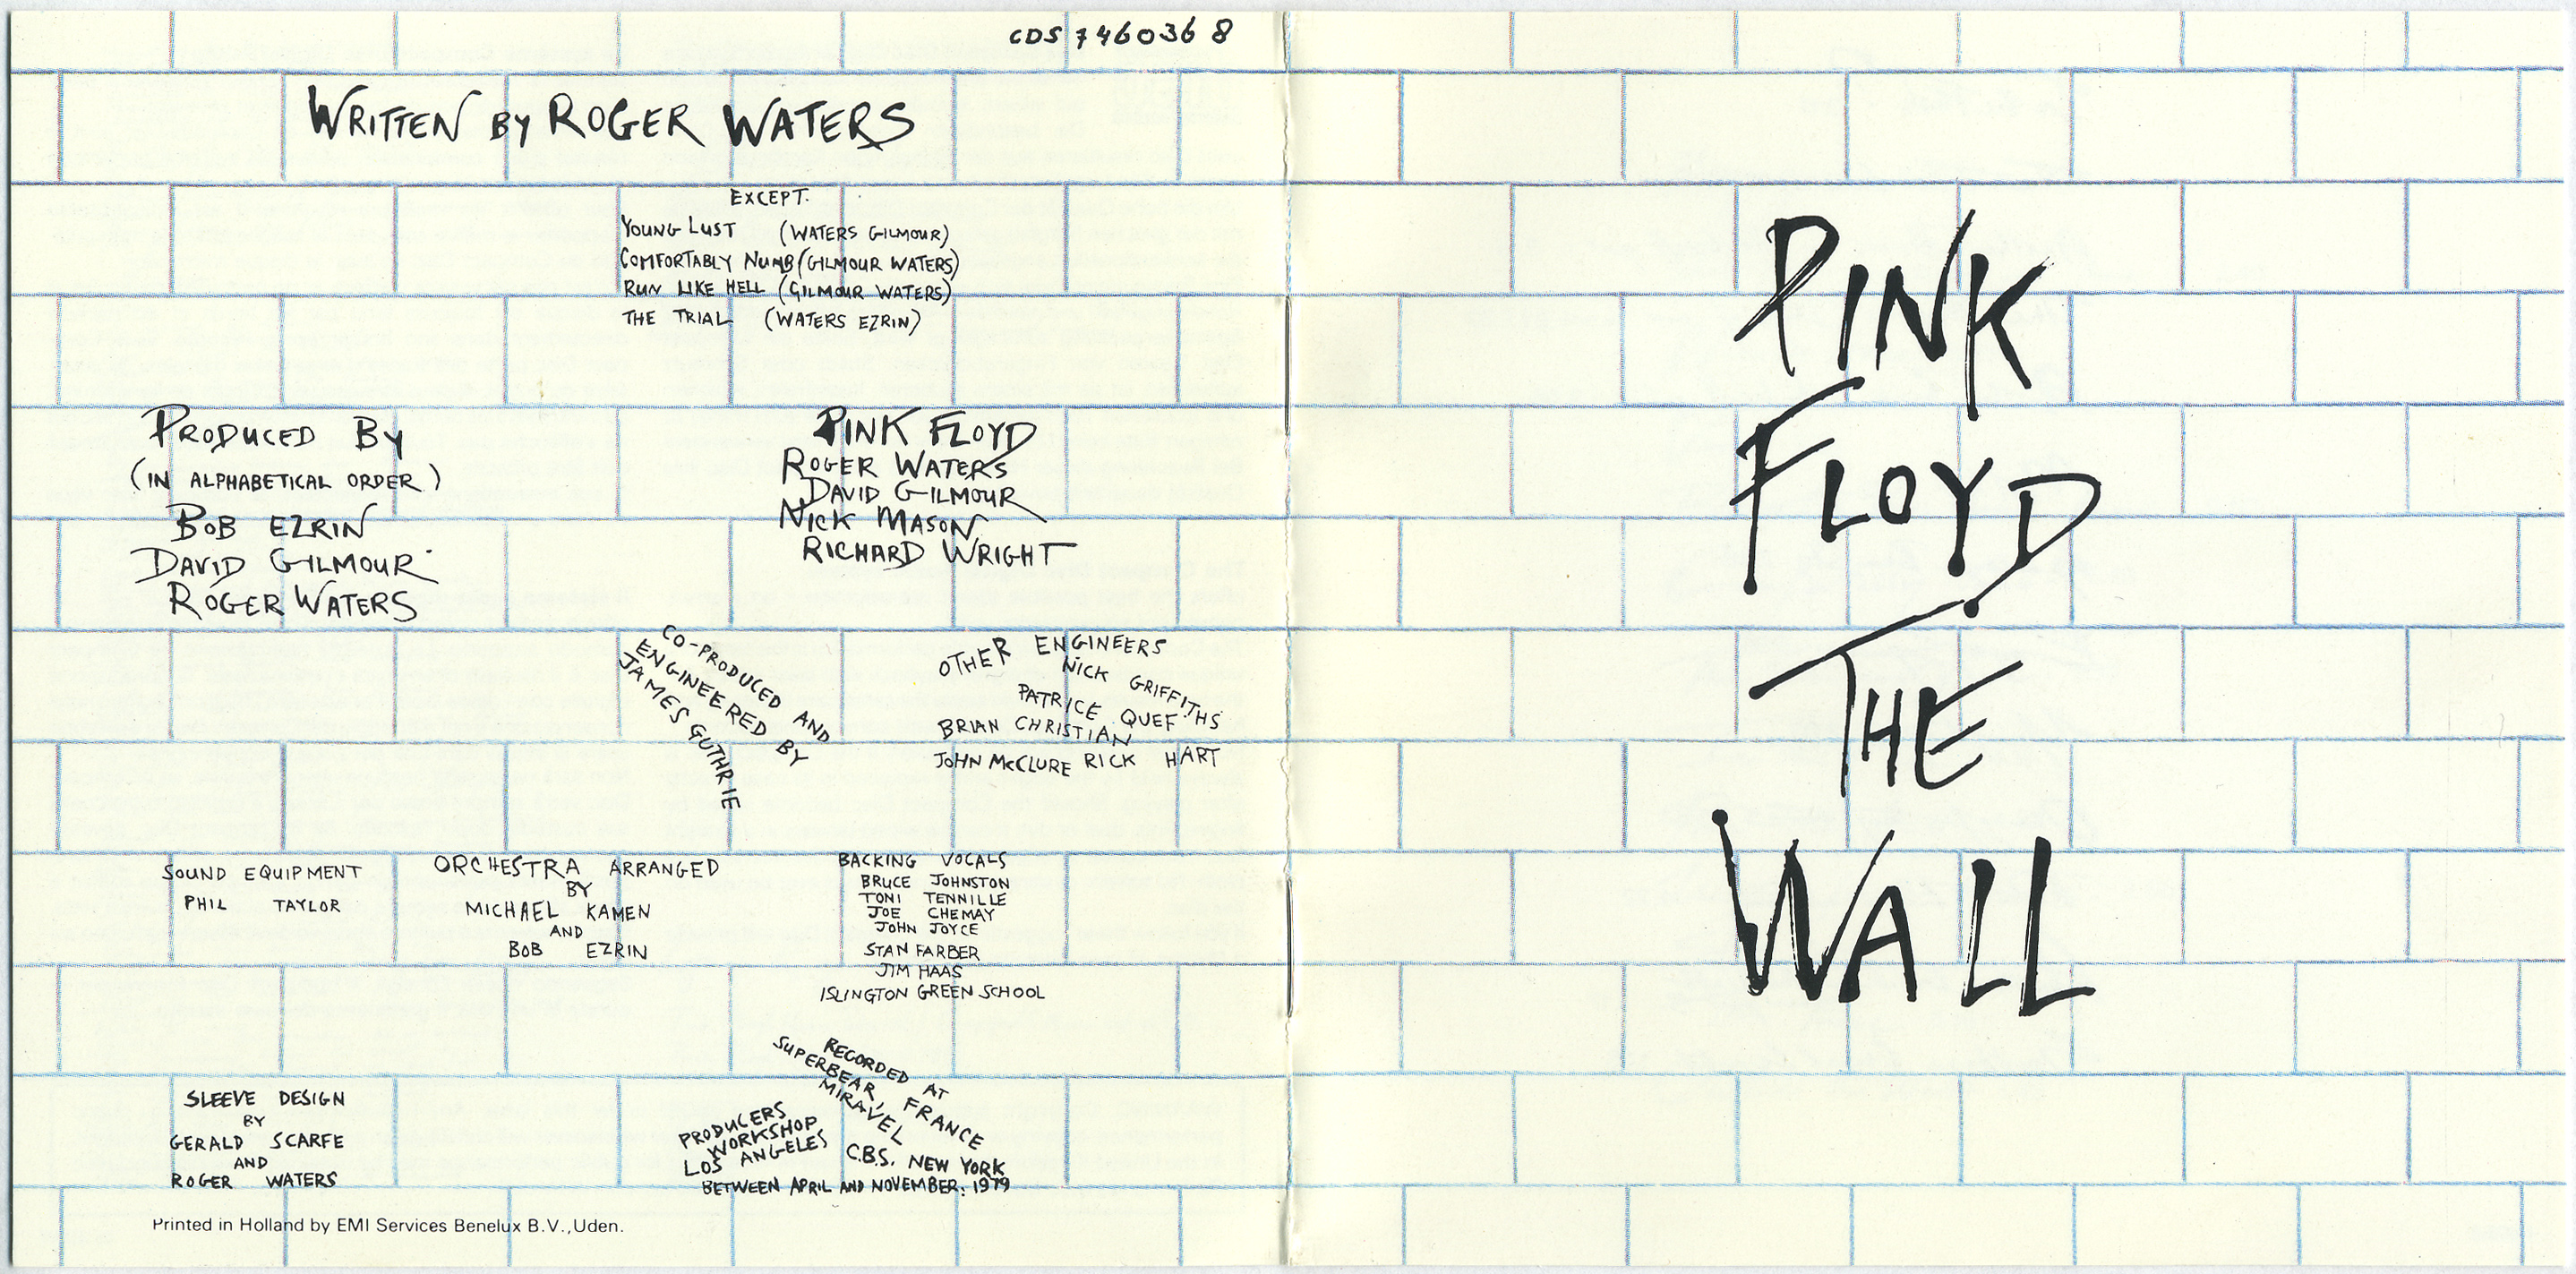 CDS 7 46036 8
WRITTEN BY ROGER WATERS
EXCEPT.
YOUNG LUST (WATERS GILMOUR)
COMFORTABLY NUMB (GILMOUR WATERS)
RUN LIKE HELL (GILMOUR WATERS)
THE TRIAL (WATERS EZRIN)
PRODUCED BY
(IN ALPHABETICAL ORDER)
BOB EZRIN
DAVID GILMOUR
ROGER WATERS
PINK FLOYD
ROGER WATERS
DAVID GILMOUR
NICK MASON
RICHARD WRIGHT
CO-PRODUCED AND
ENGINEERED BY
JAMES GUTHRIE
OTHER ENGINEERS
NICK GRIFFITHS
PATRICE QUEF
BRIAN CHRISTIAN
JOHN McCLURE RICK HART
SOUND EQUIPMENT
PHIL TAYLOR
ORCHESTRA ARRANGED
BY
MICHAEL KAMEN
AND
BOB EZRIN
BACKING VOCALS
BRUCE JOHNSTON
TONI TENNILLE
JOE CHEMAY
JOHN JOYCE
STAN FARBER
JIM HAAS
ISLINGTON GREEN SCHOOL
SLEEVE DESIGN
BY
GERALD SCARFE
AND
ROGER WATERS
RECORDED AT
SUPERBEAR, FRANCE
MIRAVEL
PRODUCERS
WORKSHOP
LOS ANGELES
C.B.S. NEW YORK
BETWEEN APRIL AND NOVEMBER: 1979
Printed in Holland by EMI Services Benelux B.V., Uden.
PINK
FLOYD
THE
WALL